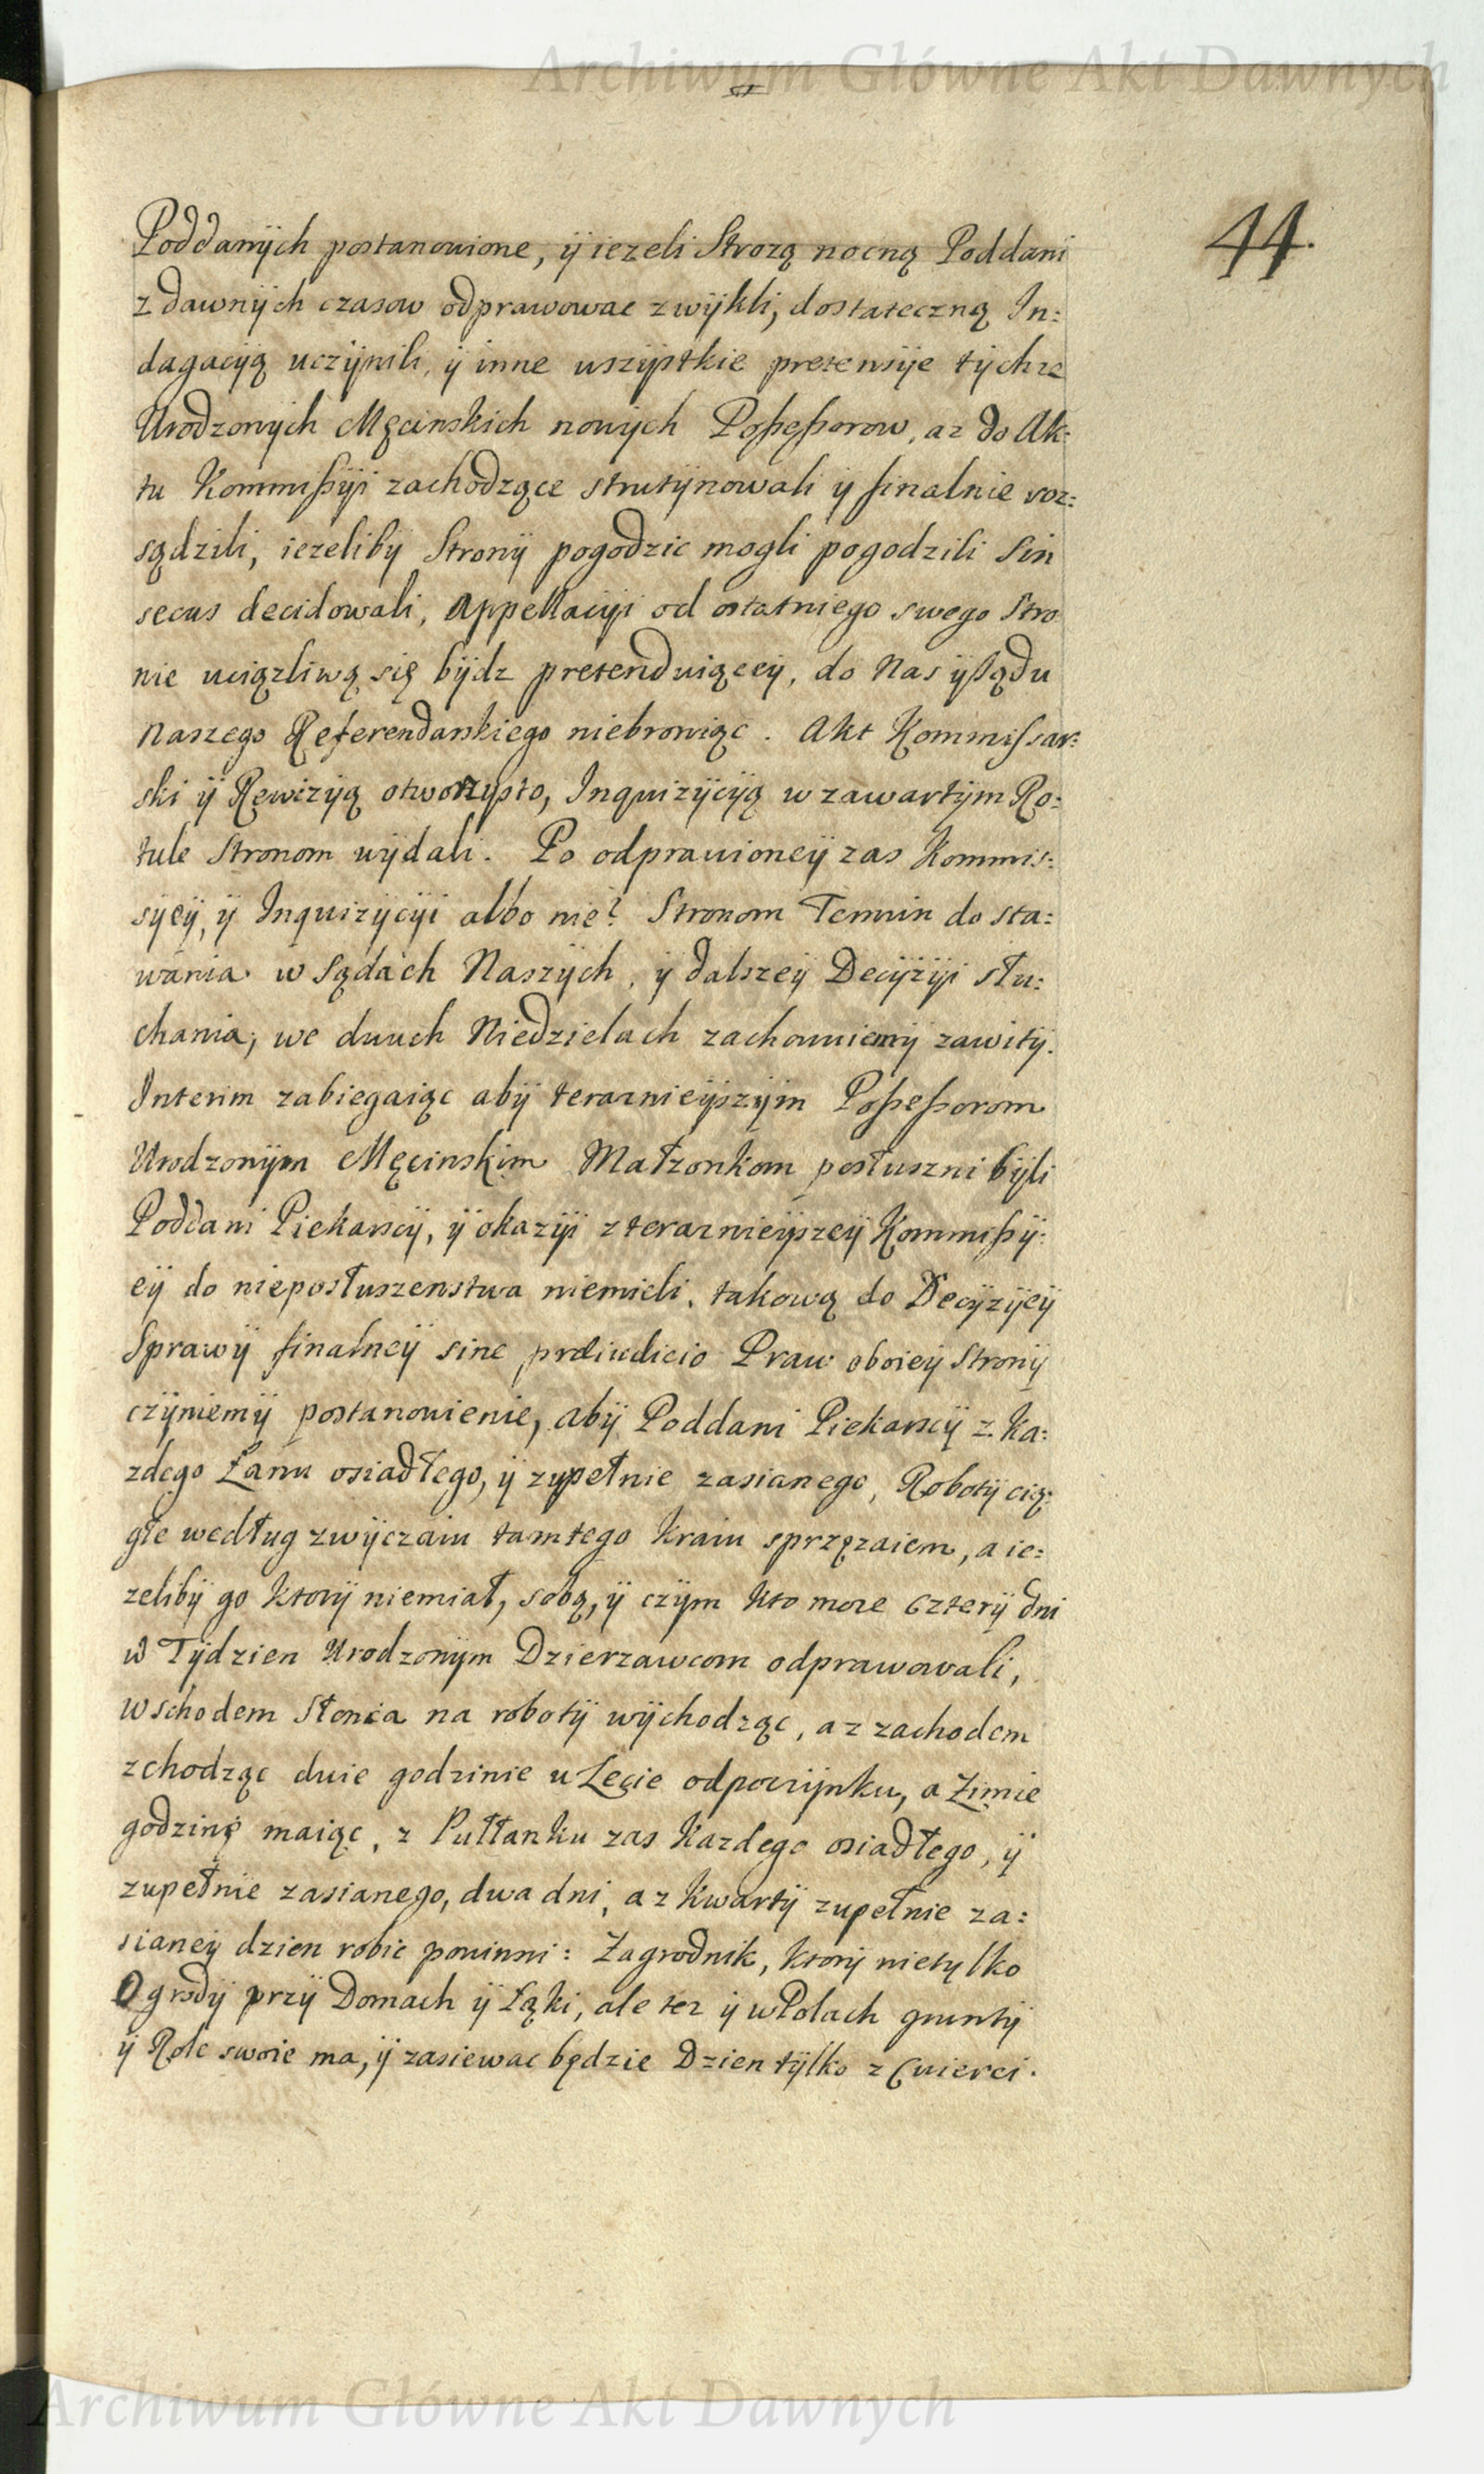 Archiwum Główne Akt Dawnych
44.
Poddanÿch postanowione, ÿ iezeli Strozą nocną Poddani
z dawnÿch czasow odprawowac zwÿkli, dostateczną In:
dagacÿą uczÿnili, ÿ inne wszÿstkie pretensÿe tÿchze
Urodzonÿch Męcinskich nowÿch Poßeßorow, az do Ak:
tu Kommißÿi zachodzące strutÿnowali ÿ finalnie roz:
sądzili, iezelibÿ Stronÿ pogodzic mogli pogodzili sin
secus decidowali, Appellacÿi od ostatniego swego Stro
nie uciązliwą się bÿdz pretenduiąceÿ, do Nas ÿ Sądu
Naszego Referendarskiego niebroniąc. Akt Kommissar:
ski ÿ Rewizÿą otworzÿsto, Inquizÿcÿą w zawartÿm Ro:
tule Stronom wÿdali. Po odprawioneÿ zas Kommis:
sÿeÿ, ÿ Inquizÿcÿi albo nie? Stronom Termin do sta:
wania w Sądach Naszÿch, ÿ dalszeÿ Decÿzÿi słu:
chania, we dwuch Niedzielach zachowuiemÿ zawitÿ.
Interim zabiegaiąc abÿ teraznieÿszÿm Poßeßorom
Urodzonÿm Męcinskim Małzonkom posłuszni bÿli
Poddani Piekarscÿ, ÿ okazÿi z teraznieÿszeÿ Kommißÿ:
eÿ do nieposłuszenstwa niemieli, takową do Decÿzÿeÿ
Sprawÿ finalneÿ sine præiudicio Praw oboieÿ Stronÿ
czÿniemÿ postanowienie, abÿ Poddani Piekarscÿ z ka:
zdego Łanu osiadłego, ÿ zupełnie zasianego, Robotÿ cią:
głe według zwÿczaiu tamtego kraiu sprzęzaiem, a ie:
zelibÿ go ktorÿ niemiał, sobą, ÿ czÿm kto moze czterÿ dni
w Tÿdzien Urodzonÿm Dzierzawcom odprawowali,
wschodem Słonca na robotÿ wÿchodząc, a z zachodem
zchodząc dwie godzinie w Lecie odpoczÿnku, a Zimie
godzinę maiąc, z Pułłanku zas kazdego osiadłego, ÿ
zupełnie zasianego, dwa dni, a z kwartÿ zupełnie za:
sianeÿ dzien robic powinni: Zagrodnik, ktorÿ nietylko
Ogrodÿ przÿ Domach ÿ Łąki, ale tez ÿ w Polach gruntÿ
ÿ Role swoie ma, ÿ zasiewac będzie Dzien tÿlko z Cwierci.
Archiwum Główne Akt Dawnych